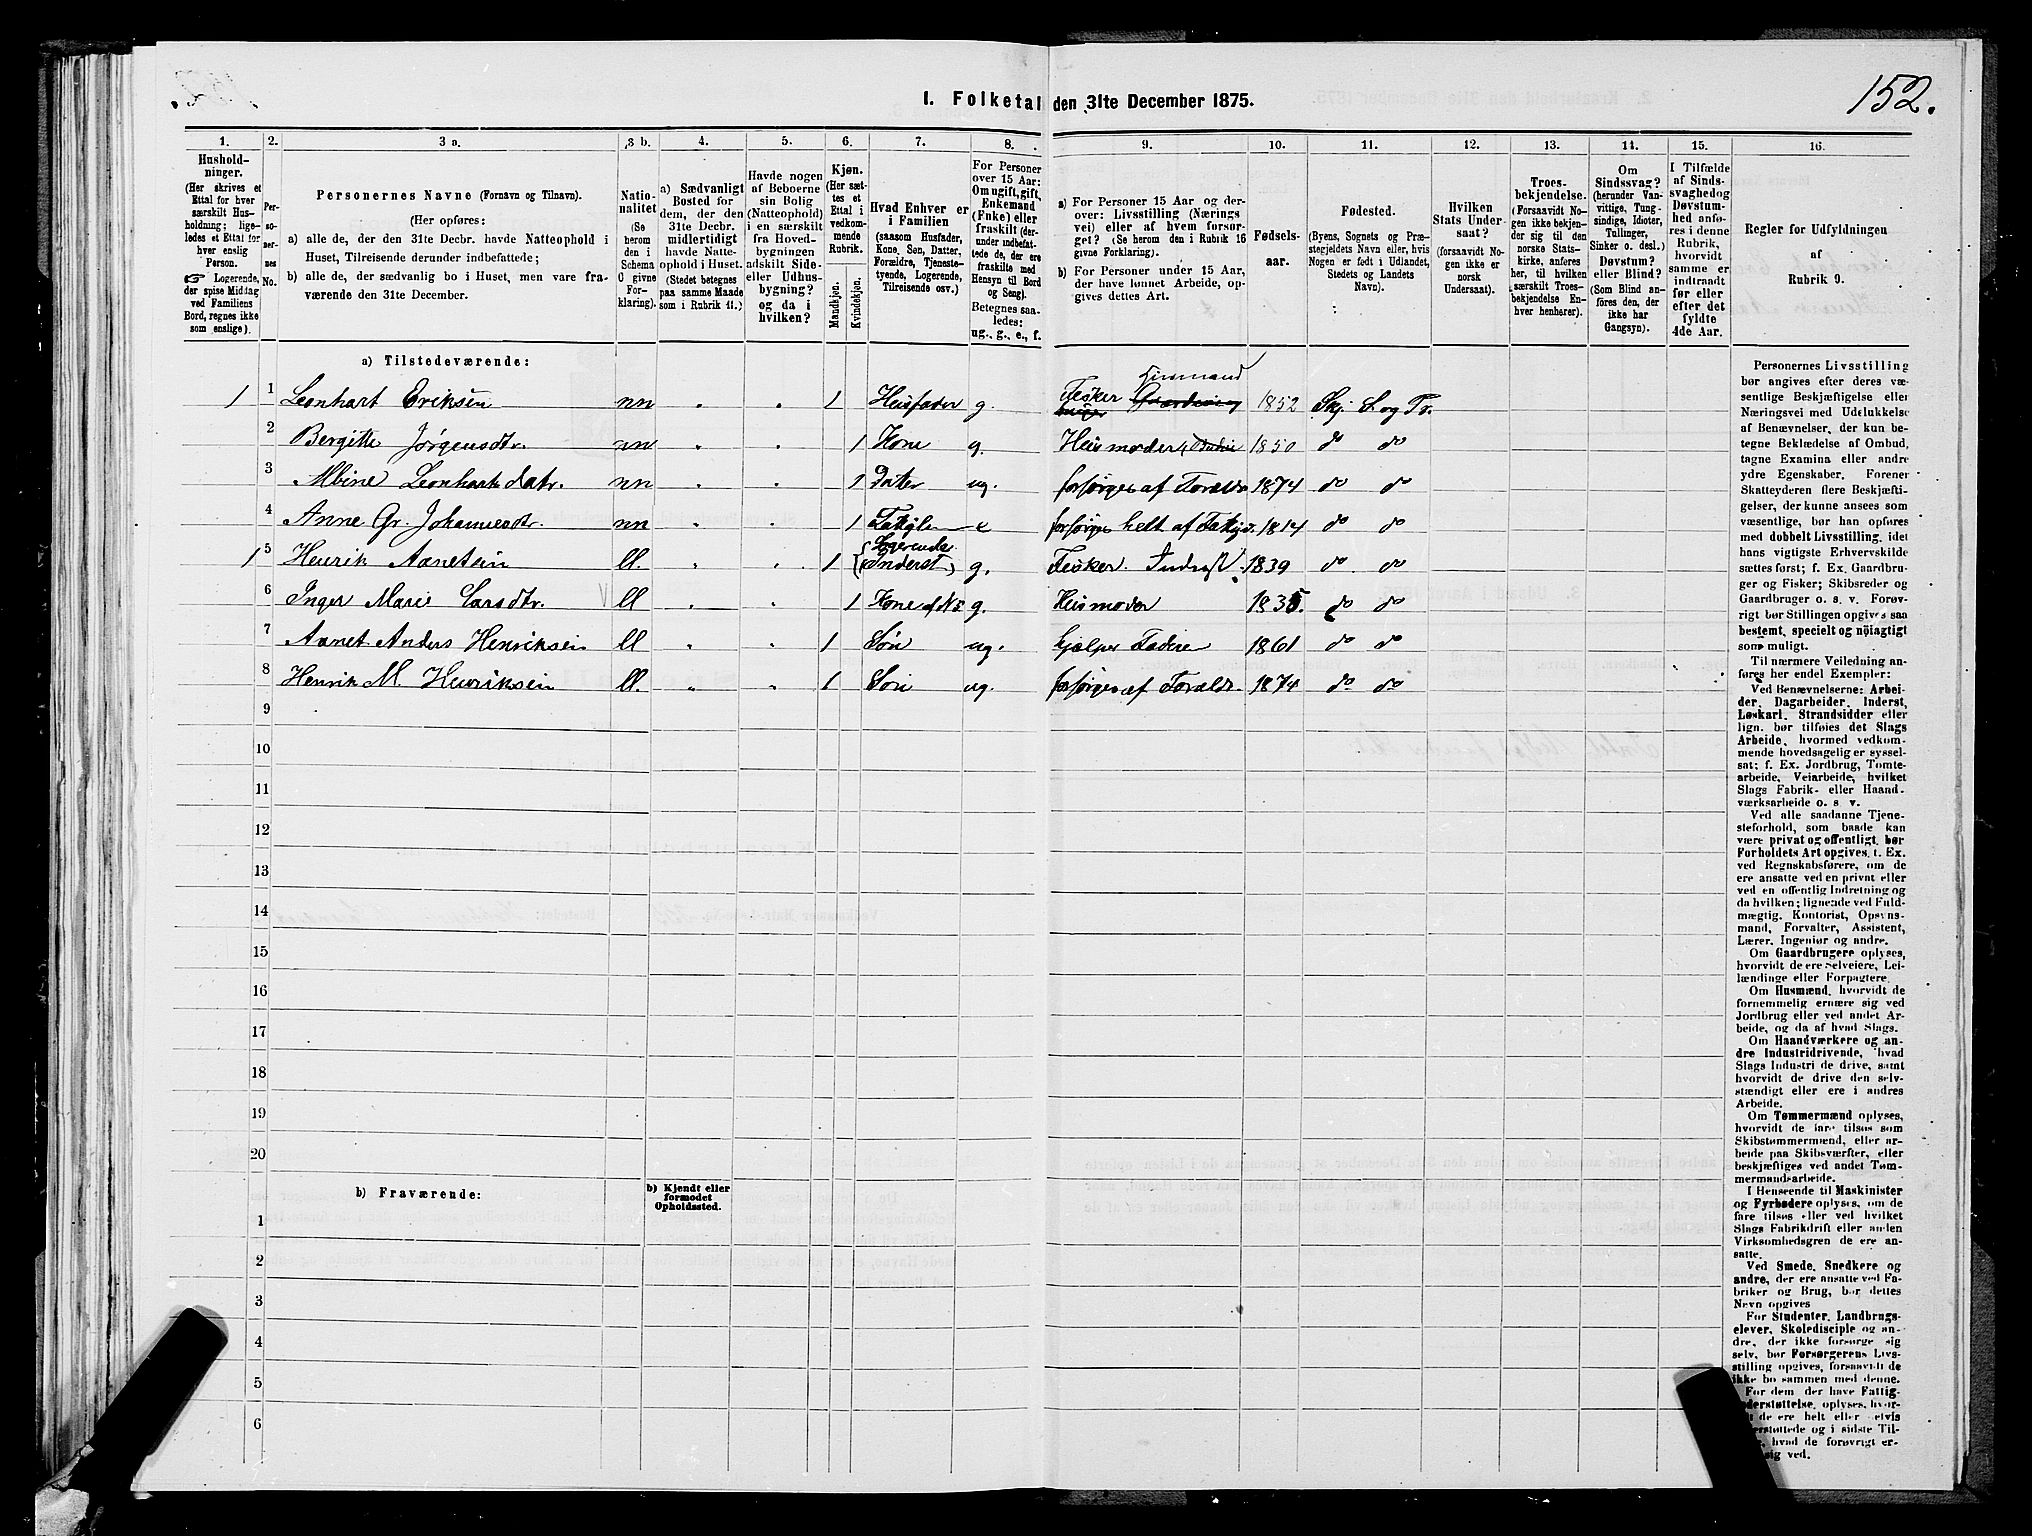 152.
1. Folketal den 31te December 1875.
1. 2. 3 a. 3 b. 4. 5. 6. 7. 8. 9. 10. 11. 12. 13. 14. 15. 16.
Hushold-
ninger.
(Her skrives et
Ettal for hver
særskilt Hus-
holdning; lige-
ledes et Ettal for
hver enslig
Person.
☞ Logerende,
der spise Middag
ved Familiens
Bord, regnes ikke
som enslige).
Per-
so-
ner-
nes
No.
Personernes Navne (Fornavn og Tilnavn).
(Her opføres:
a) alle de, der den 31te Decbr. havde Natteophold i
Huset, Tilreisende derunder indbefattede;
b) alle de, der sædvanlig bo i Huset, men vare fra-
værende den 31te December.
Natio-
nalitet
(Se
herom
den i
Schema
O givne
For-
klaring).
a) Sædvanligt
Bosted for
dem, der den
31te Decbr.
midlertidigt
havde Natte-
ophold i Huset.
(Stedet betegnes
paa samme Maade
som i Rubrik 11.)
Havde nogen
af Beboerne
sin Bolig
(Natteophold)
i en særskilt
fra Hoved-
bygningen
adskilt Side-
eller Udhus-
bygning?
og da i
hvilken?
Kjøn.
(Her sæt-
tes et
Ettal i
vedkom-
mende
Rubrik.
Mandkjøn.
Kvindekjøn.
Hvad Enhver er
i Familien
(saasom Husfader,
Kone, Søn, Datter,
Forældre, Tjeneste-
tyende, Logerende,
Tilreisende osv.)
For Personer
over 15 Aar:
Om ugift, gift,
Enkemand
(Enke) eller
fraskilt (der-
under indbefat-
tede de, der ere
fraskilte med
Hensyn til Bord
og Seng).
Betegnes saa-
ledes:
ug., g., e., f.
a) For Personer 15 Aar og der-
over: Livsstilling (Nærings
vei) eller af hvem forsør-
get? (Se herom den i Rubrik 16
givne Forklaring).
b) For Personer under 15 Aar,
der have lønnet Arbeide, op-
gives dettes Art.
Fødsels-
aar.
Fødested.
(Byens, Sognets og Præ-
stegjeldets Navn eller, hvis
Nogen er født i Udlandet,
Stedets og Landets
Navn).
Hvilken
Stats Under-
saat?
(forsaavidt No-
gen ikke er
norsk
Undersaat).
Troes-
bekjendelse.
(Forsaavidt No-
gen ikke bekjen-
der sig til den
norske Stats-
kirke, anføres
her, til hvilken
særskilt Troes-
bekjendelse En-
hver henhører).
Om
Sindssvag?
(herunder Van-
vittige, Tung-
sindige, Idioter,
Tullinger,
Sinker o. desl.)
Døvstum?
eller Blind?
(Som Blind an-
føres den, der
ikke har
Gangsyn).
I Tilfælde
af Sinds-
svaghed og
Døvstum-
hed anfø-
res i denne
Rubrik,
hvorvidt
samme er
indtraadt
før eller
efter det
fyldte
4de Aar.
Regler for Udfyldningen
af
Rubrik 9.
a) Tilstedeværende:
1 1 Leonhart Eriksen nn " " 1 Husfader g. Fisker 1852 Skj. S. og Pr.
2 Bergitte Jørgensdtr. nn " " 1 Kone g. Husmoder 1850 do do
3 Albine Leonhartsdatr. nn " " 1 Datter ug. forsørges af Foræld. 1874 do do
4 Anne Gr. Johannesdtr. nn " " 1 e forsørges helt af 1814 do do
Logerende
1 5 Henrik Aanetsen ll. " " 1 (Inderst) g. Fisker. Inderst. 1839 do do
6 Inger Marie Larsdtr. ll " " 1 Kone af No 5 g. Husmoder 1835. do do
7 Aanet Anders Henriksen ll " " 1 Søn ug. hjælper Faderen 1861 do do
8 Henrik M. Henriksen ll. " " 1 Søn ug. forsørges af Foræld. 1874 do do
9
10
11
12
13
14
15
16
17
18
19
20
b) Fraværende:
b) Kjendt eller
formodet
Opholdssted.
1
2
3
4
5
6
Personernes Livsstilling
bør angives efter deres væ-
sentlige Beskjæftigelse eller
Næringsvei med Udelukkelse
af Benævnelser, der kun be-
tegne Beklædelse af Ombud,
tagne Examina eller andre
ydre Egenskaber. Forener
Skatteyderen flere Beskjæfti-
gelser, der kunne ansees som
væsentlige, bør han opføres
med dobbelt Livsstilling, idet
hans vigtigste Erhvervskilde
sættes først; f. Ex. Gaardbru-
ger og Fisker; Skibsreder og
Gaardbruger o. s. v. Forøv-
rigt bør Stillingen opgives saa
bestemt, specielt og nøiagtigt
som muligt.
Til nærmere Veiledning an-
føres her endel Exempler:
Ved Benævnelserne: Arbei-
der, Dagarbeider, Inderst,
Løskarl, Strandsidder eller
lign. bør tilføies det Slags
Arbeide, hvormed vedkom-
mende hovedsagelig er syssel-
sat; f. Ex. Jordbrug, Tomte-
arbeide, Veiarbeide, hvilket
Slags Fabrik- eller Haand-
værksarbeide o. s. v.
Ved alle saadanne Tjene-
steforhold, som baade kan
være privat og offentligt, bør
Forholdets Art opgives, t. Ex.
ved Regnskabsførere, om de
ere ansatte ved en privat eller
ved en offentlig Indretning og
da hvilken; lignende ved Fuld-
mægtig, Kontorist, Opsyns-
mand, Forvalter, Assistent,
Lærer, Ingeniør og andre.
Om Gaardbrugere oplyses,
hvorvidt de ere Selveiere, Lei-
lændinge eller Forpagtere.
Om Husmænd, hvorvidt de
fornemmelig ernære sig ved
Jordbrug eller ved andet Ar-
beide, og da af hvad Slags.
Om Haandværkere og an-
dre Industridrivende, hvad
Slags Industri de drive, samt
hvorvidt de drive den selv-
stændigt eller ere i andres
Arbeide.
Om Tømmermænd oplyses,
hvorvidt de fare tilsøs som
Skibstømmermænd, eller ar-
beide paa Skibsværfter, eller
beskjæftiges ved andet Tøm-
mermandsarbeide.
I Henseende til Maskinister
og Fyrbødere oplyses, om de
fare tilsøs eller ved hvilket
Slags Fabrikdrift eller anden
Virksomhedsgren de ere an-
satte.
Ved Smede, Snedkere og
andre, der ere ansatte ved Fa-
briker og Brug, bør dettes
Navn opgives
For Studenter, Landbrugs-
elever, Skoledisciple og an-
dre, der ikke forsørge sig
selv, bør Forsørgerens Livs-
stilling opgives, forsaavidt de
ikke bo sammen med denne.
For dem, der have Fattig-
understøttelse, oplyses, hvor-
de ere helt eller
og i sidste Til-
hvad de forøvrigt er-
sig ved.